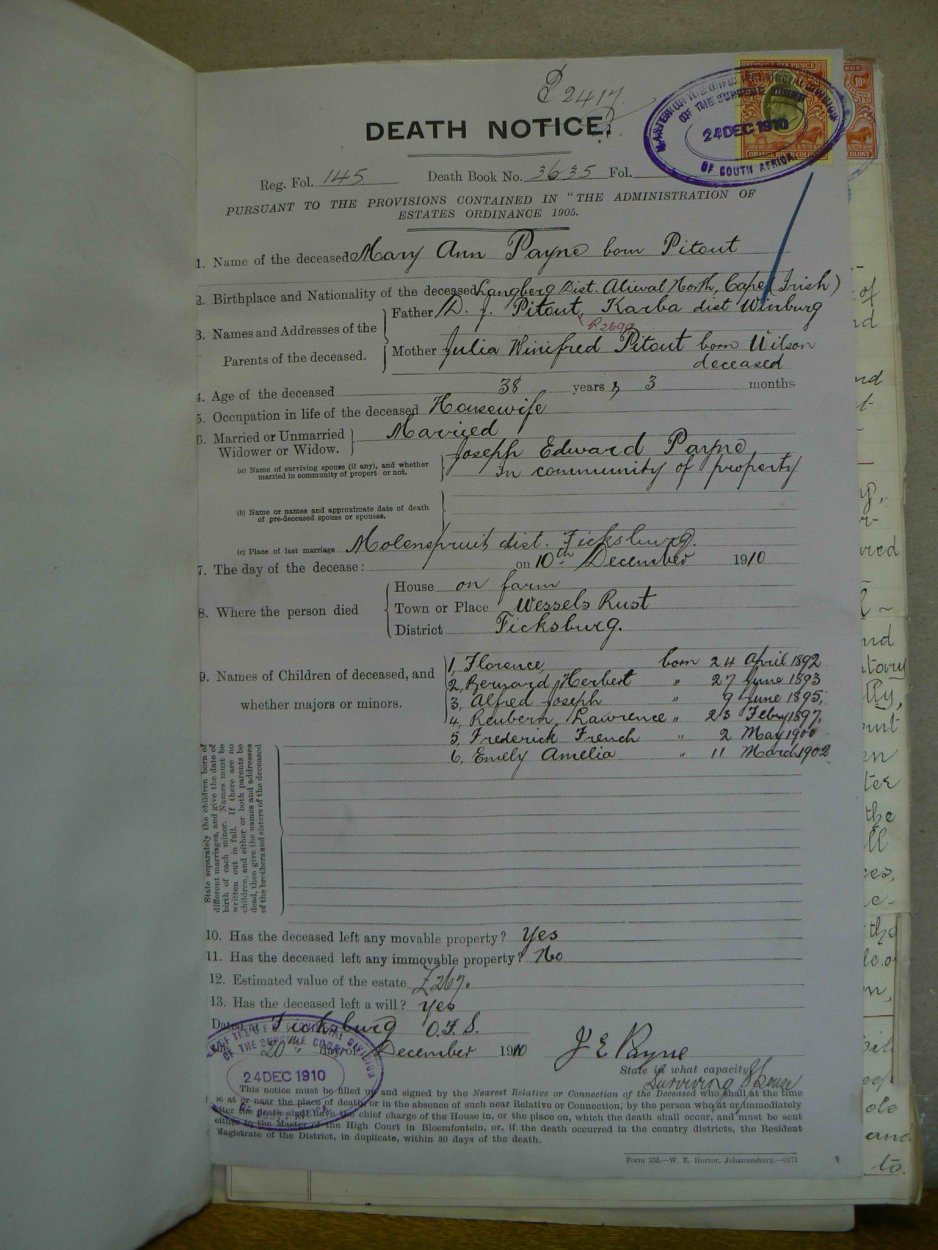 P. 2417
DEATH NOTICE.
MASTER OF THE O.F.S. PROVINCIAL DIVISION
OF THE SUPREME COURT
24 DEC 1910
OF SOUTH AFRICA
SIX PENCE
ORANGE RIVER COLONY
Reg. Fol. 145 Death Book No. 3635 Fol.
PURSUANT TO THE PROVISIONS CONTAINED IN "THE ADMINISTRATION OF
ESTATES ORDINANCE 1905.
1. Name of the deceased Mary Ann Payne born Pitout
2. Birthplace and Nationality of the deceased Langberg Dist. Aliwal North, Cape (Irish)
3. Names and Addresses of the Parents of the deceased.
Father D. J. Pitout, Karba dist Winburg
Mother Julia Winifred Pitout born Wilson
deceased
4. Age of the deceased 38 years, 3 months
5. Occupation in life of the deceased Housewife
6. Married or Unmarried Married
Widower or Widow.
(a) Name of surviving spouse (if any), and whether Joseph Edward Payne
married in community of propery or not. In community of property
(b) Name or names and approximate date of death
of pre-deceased spouse or spouses.
(c) Place of last marriage Molenspruit dist. Ficksburg.
7. The day of the decease: on 10th December 1910
8. Where the person died
House on farm
Town or Place Wessels Rust
District Ficksburg.
9. Names of Children of deceased, and
whether majors or minors.
1, Florence born 24 April 1892
2, Bernard Herbert " 27 June 1893
3, Alfred Joseph " 9 June 1895,
4, Reubern Lawrence " 23 Febry 1897,
5, Frederick French " 2 May 1900
6, Emily Amelia " 11 March 1902
State separately the children born of
different marriages, and give the date of
birth of each minor. Names must be
written out in full. If there are no
children, and either or both parents be
dead, then give the names and addresses
of the brothers and sisters of the deceased
10. Has the deceased left any movable property? Yes
11. Has the deceased left any immovable property? No
12. Estimated value of the estate £267.
13. Has the deceased left a will? yes
Dated at Ficksburg O.F.S.
20th day of December 1910
J E Payne
State in what capacity
Surviving Spouse
OF THE SUPREME COURT
24 DEC 1910
This notice must be filled up and signed by the Nearest Relative or Connection of the Deceased who shall at the time
be at or near the place of death, or in the absence of such near Relative or Connection, by the person who at or immediately
after the death shall have the chief charge of the House in, or the place on, which the death shall occur, and must be sent
either to the Master of the High Court in Bloemfontein, or, if the death occurred in the country districts, the Resident
Magistrate of the District, in duplicate, within 30 days of the death.
Form 535.—W. E. Hortor, Johannesburg.—6171